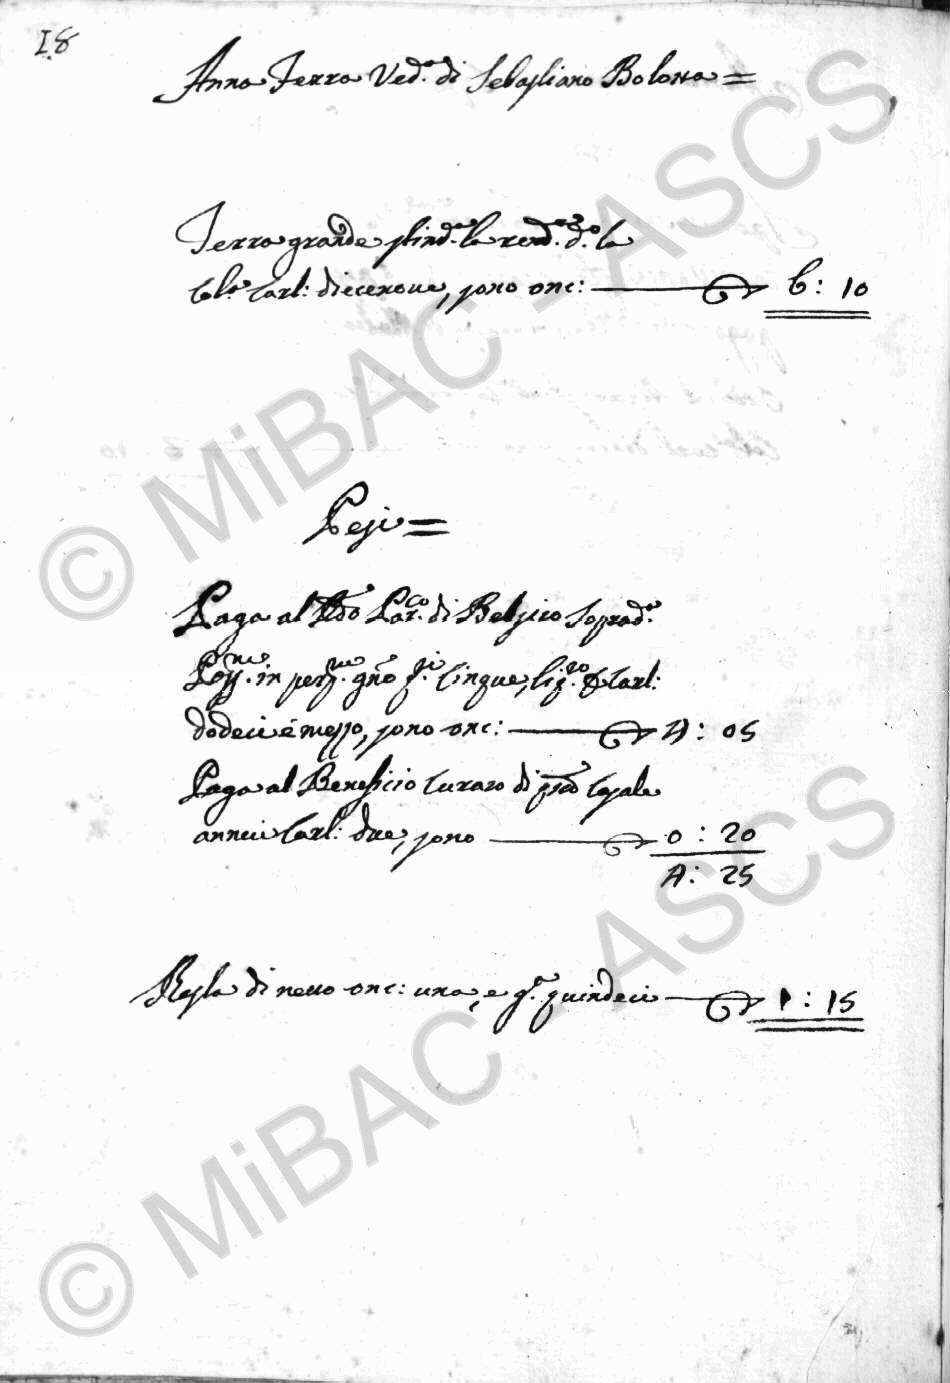 18
Anna Ferra Ved.ª di Sebastiano Bolossa =
Terra grande stim.ª la rend.ª d.º la
Carl: diecenove, sono onc: 6: 10
Pesi =
Paga al Rdo Par.co di Belsito soprad.º
in cinque, Carl:
dodeci é mezzo, sono onc: 4: 05
Paga al Beneficio Curato di psto Casale
annui Carl: due, sono 0: 20
4: 25
Resta di netto onc: una, e q.ª quindeci 1: 15
© MiBAC - ASCS
© MiBAC - ASCS